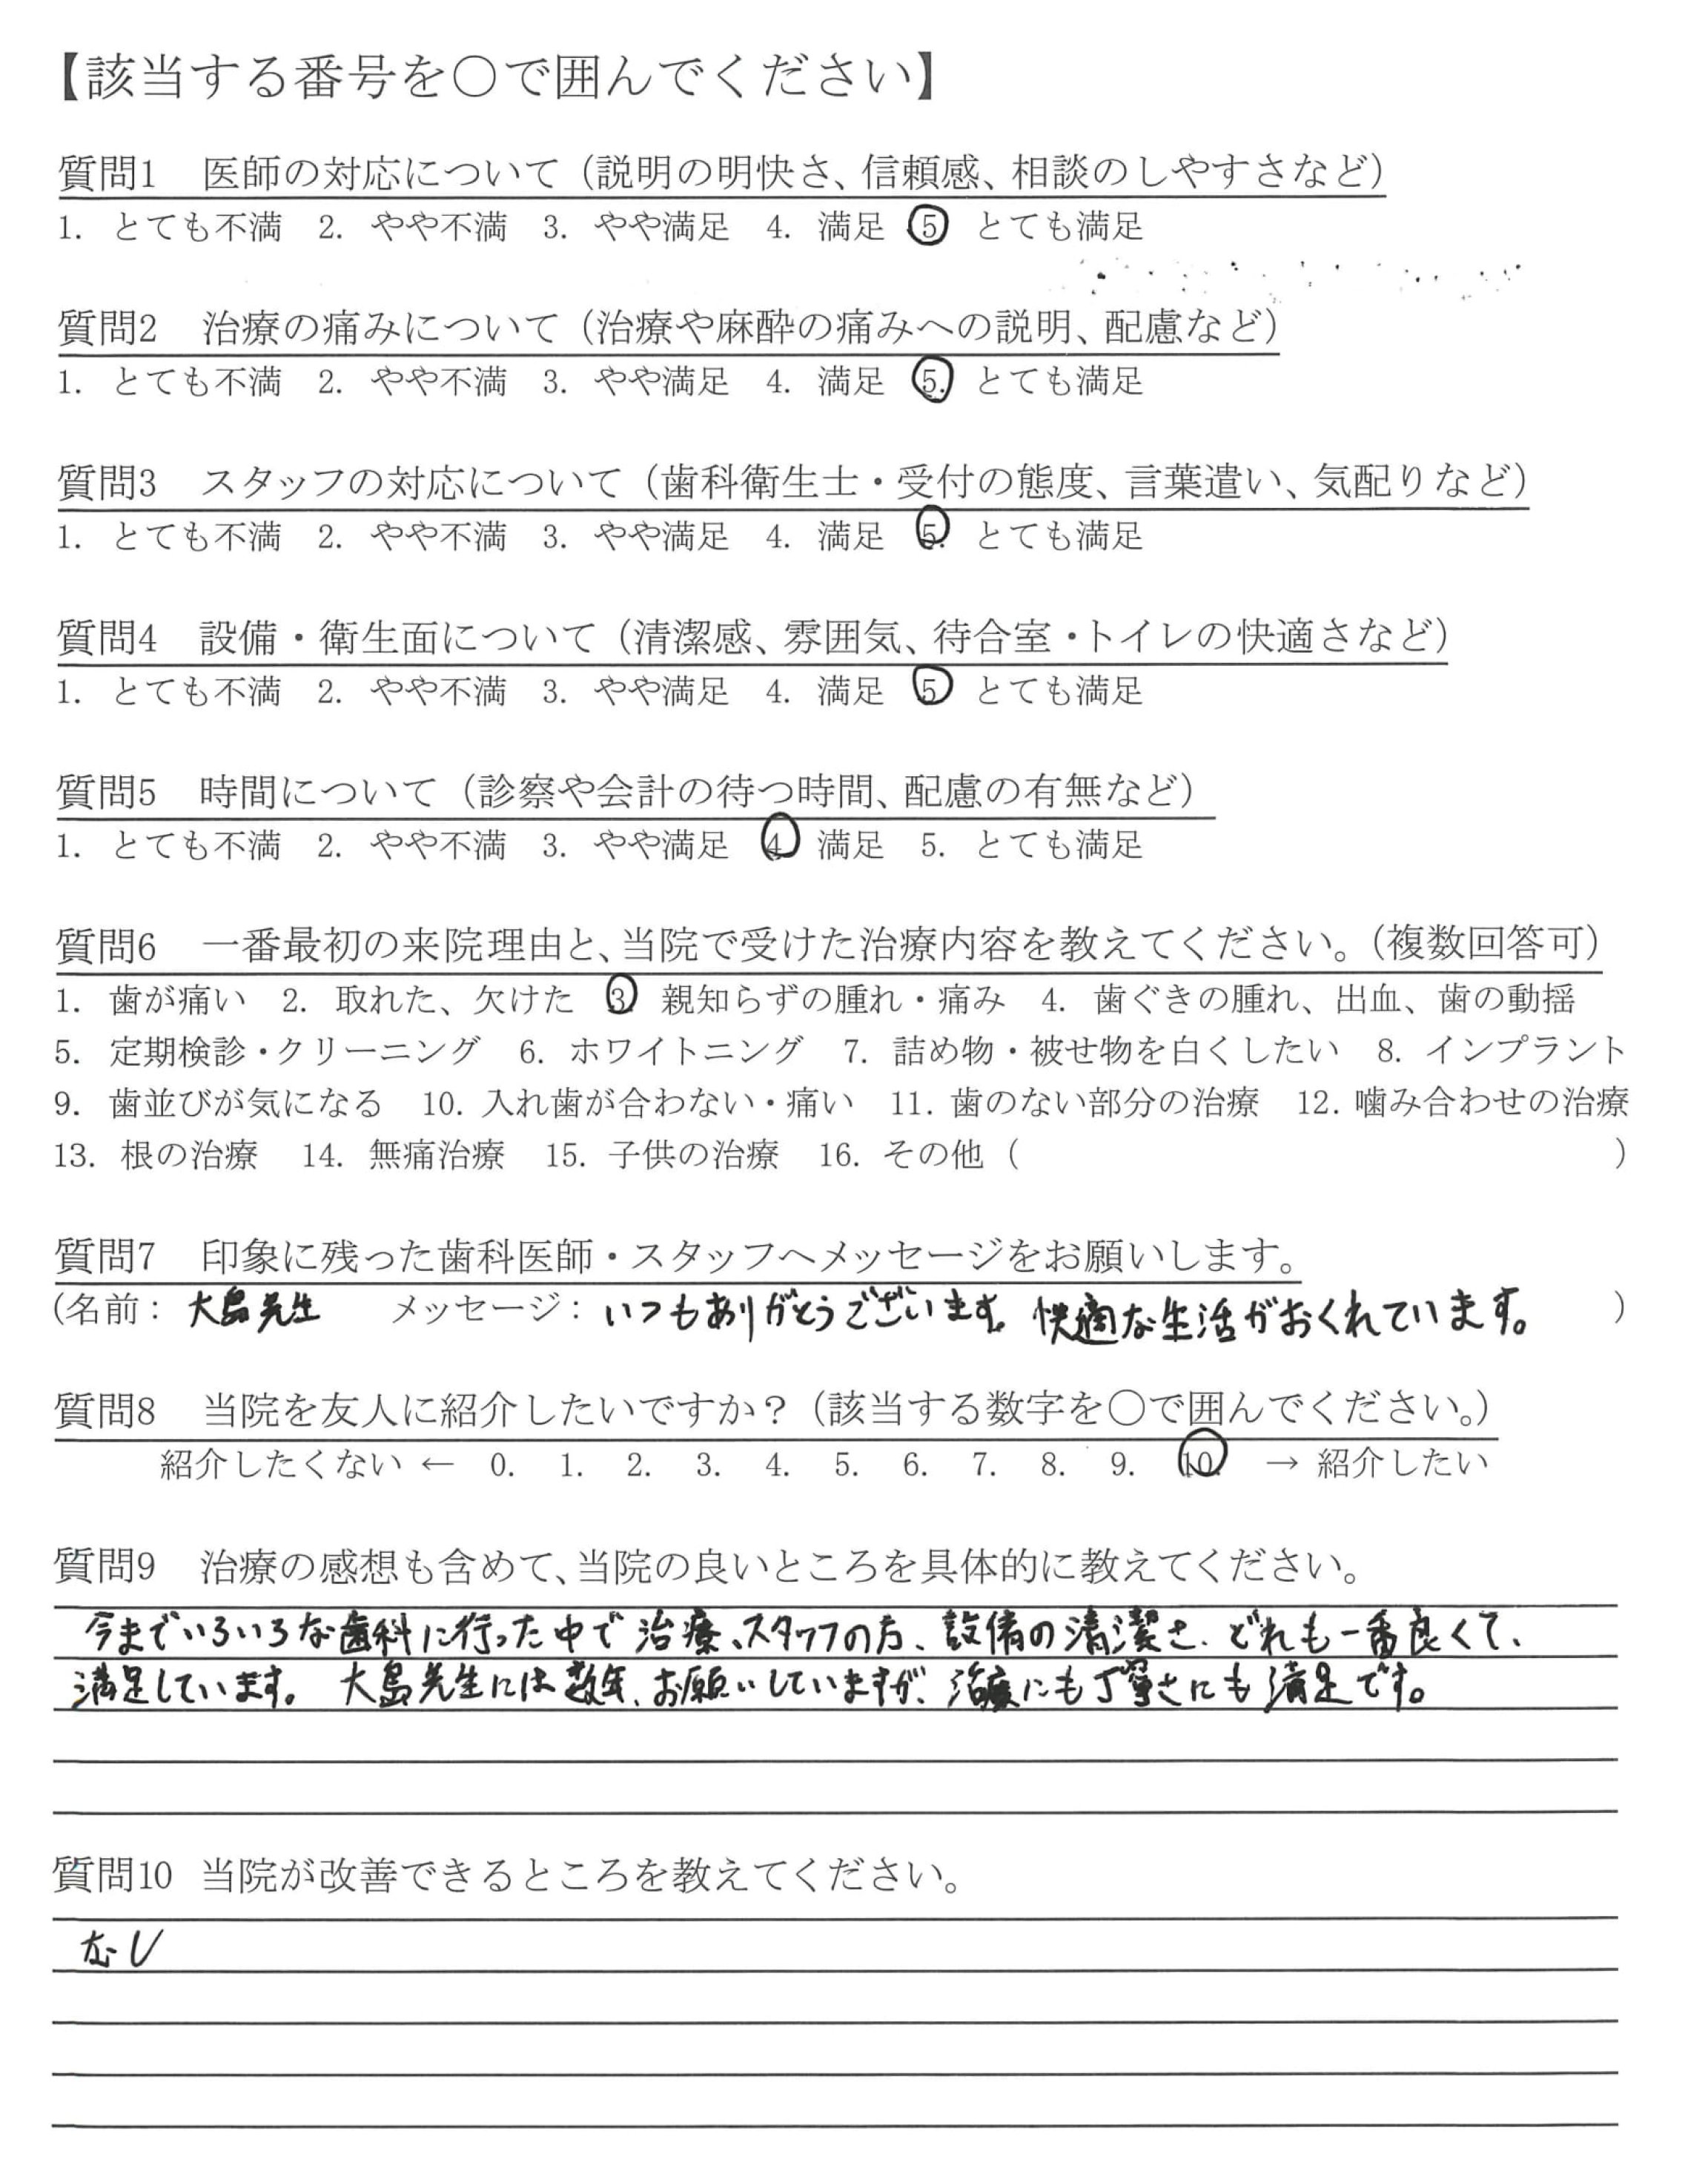 【該当する番号を○で囲んでください】
質問1　医師の対応について（説明の明快さ、信頼感、相談のしやすさなど）
1. とても不満　2. やや不満　3. やや満足　4. 満足　5　とても満足
質問2　治療の痛みについて（治療や麻酔の痛みへの説明、配慮など）
1. とても不満　2. やや不満　3. やや満足　4. 満足　5. とても満足
質問3　スタッフの対応について（歯科衛生士・受付の態度、言葉遣い、気配りなど）
1. とても不満　2. やや不満　3. やや満足　4. 満足　5. とても満足
質問4　設備・衛生面について（清潔感、雰囲気、待合室・トイレの快適さなど）
1. とても不満　2. やや不満　3. やや満足　4. 満足　5　とても満足
質問5　時間について（診察や会計の待つ時間、配慮の有無など）
1. とても不満　2. やや不満　3. やや満足　4. 満足　5. とても満足
質問6　一番最初の来院理由と、当院で受けた治療内容を教えてください。（複数回答可）
1. 歯が痛い　2. 取れた、欠けた　3　親知らずの腫れ・痛み　4. 歯ぐきの腫れ、出血、歯の動揺
5. 定期検診・クリーニング　6. ホワイトニング　7. 詰め物・被せ物を白くしたい　8. インプラント
9. 歯並びが気になる　10. 入れ歯が合わない・痛い　11. 歯のない部分の治療　12. 噛み合わせの治療
13. 根の治療　14. 無痛治療　15. 子供の治療　16. その他（　　　）
質問7　印象に残った歯科医師・スタッフへメッセージをお願いします。
（名前：大島先生　メッセージ：いつもありがとうございます。快適な生活がおくれています。）
質問8　当院を友人に紹介したいですか？（該当する数字を○で囲んでください。）
紹介したくない ← 0. 1. 2. 3. 4. 5. 6. 7. 8. 9. 10. → 紹介したい
質問9　治療の感想も含めて、当院の良いところを具体的に教えてください。
今までいろいろな歯科に行った中で治療、スタッフの方、設備の清潔さ、どれも一番良くて、
満足しています。大島先生には数年、お願いしていますが、治療にも丁寧さにも満足です。
質問10　当院が改善できるところを教えてください。
なし